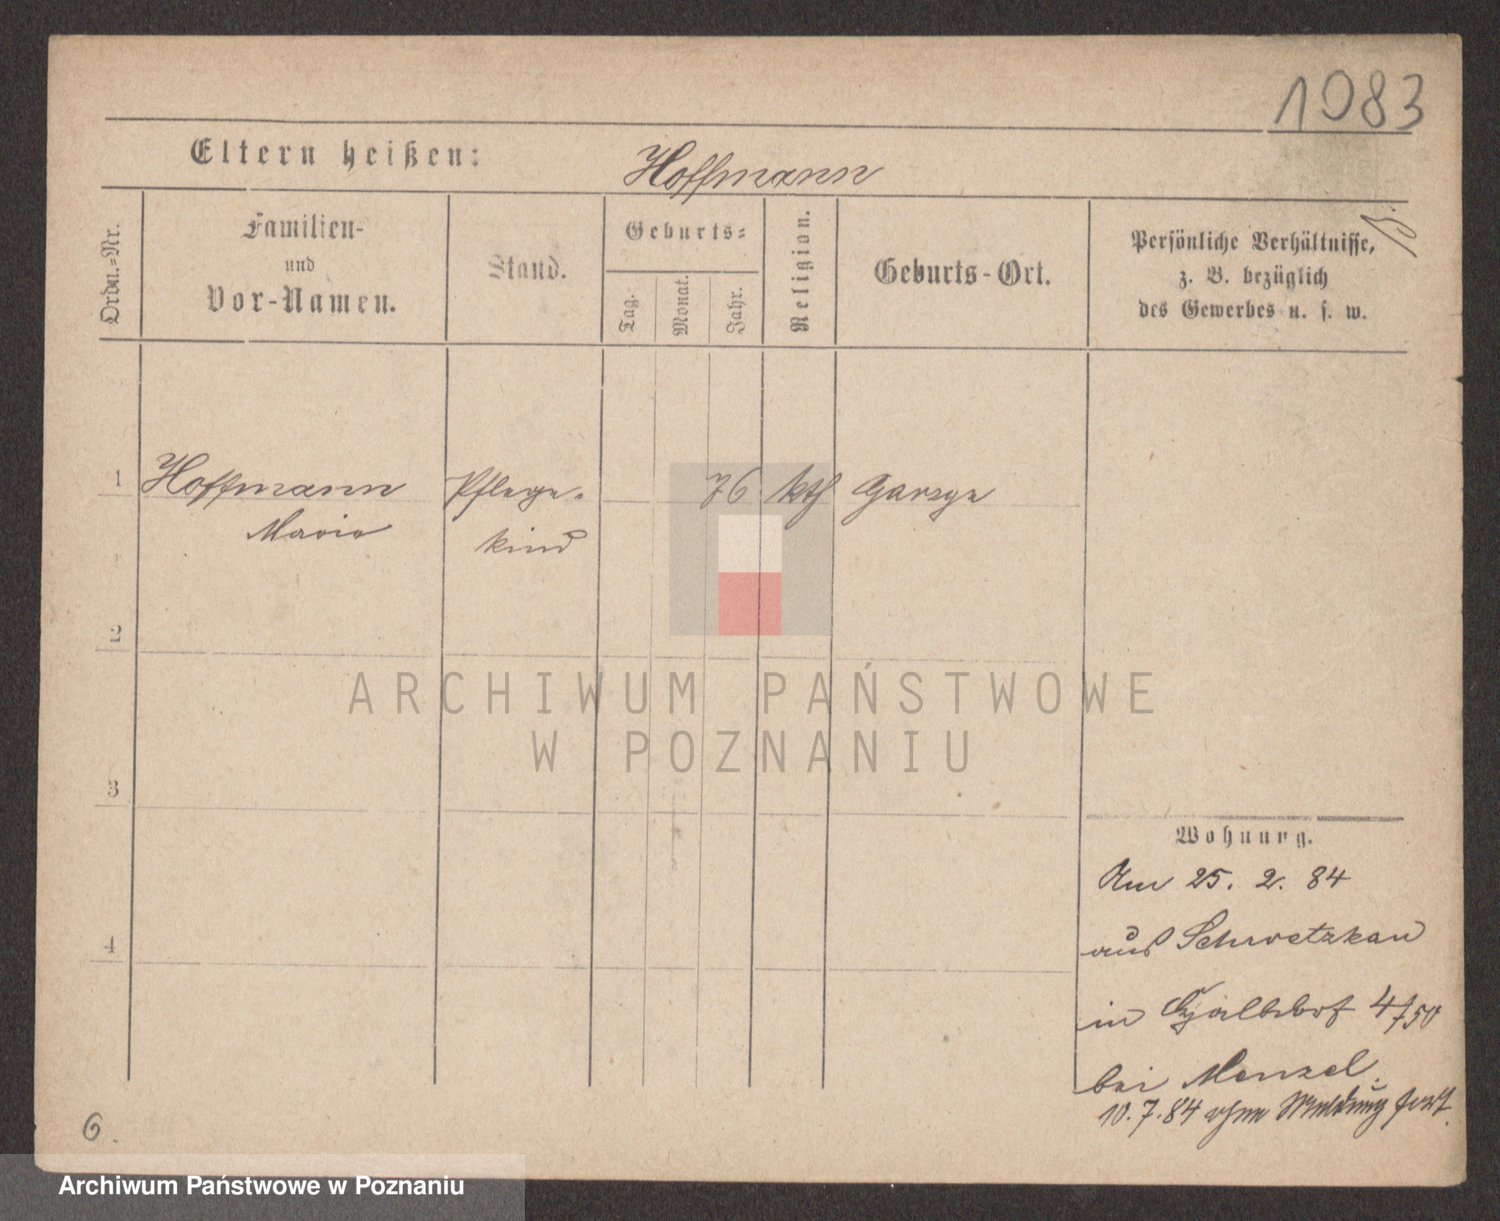 1083
Eltern heißen: Hoffmann
Ordn.-Nr.
Familien-
und
Vor-Namen.
Stand.
Geburts-
Tag.
Monat.
Jahr.
Religion.
Geburts-Ort.
Persönliche Verhältnisse,
z. B. bezüglich
des Gewerbes u. s. w.
1 Hoffmann Pflege- 76 kth
Marie kind
2
3
4
Wohnung.
Am 25. 2. 84
aus Schwetzkau
in 4/50
bei Menzel.
10. 7. 84 ohne Meldung fort.
6.
ARCHIWUM PAŃSTWOWE
W POZNANIU
Archiwum Państwowe w Poznaniu